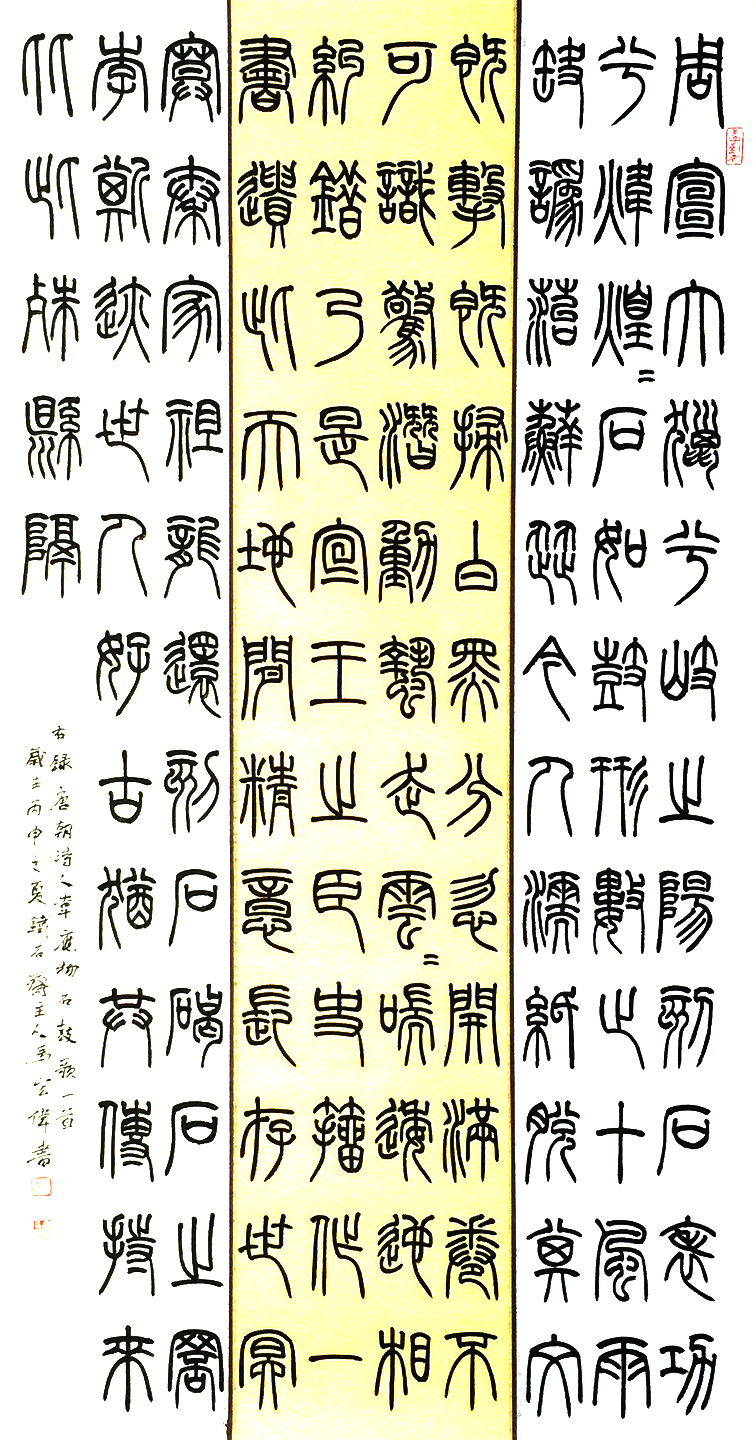 周宣大獵兮岐之陽刻石表功
兮煒煌〻石如鼓形數止十風雨
缺譌苔蘚澀今人濡紙脫其文
既擊既掃白黑分忽開滿卷不
可識驚潛動蟄走雲〻喘逶迤相
糾錯乃是宣王之臣史籀作一
書遺此天地間精意長存世冥
寞秦家祖龍還刻石碣石之罘
李斯跡世人好古猶共傳持來
比此殊縣隔
右録唐朝詩人韋應物石鼓歌一首
歲在丙申之夏鐵石齋主人馬偉書